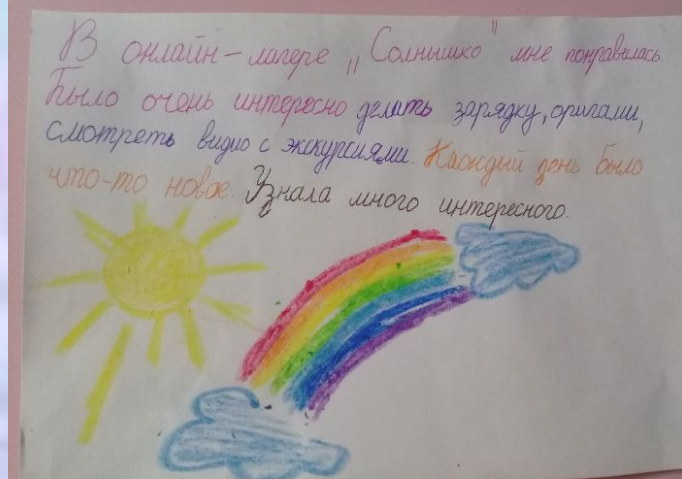 В онлайн-лагере „Солнышко" мне понравилась.
Было очень интересно делать зарядку, оригами,
смотреть видио с экскурсиями. Каждый день было
что-то новое. Узнала много интересного.